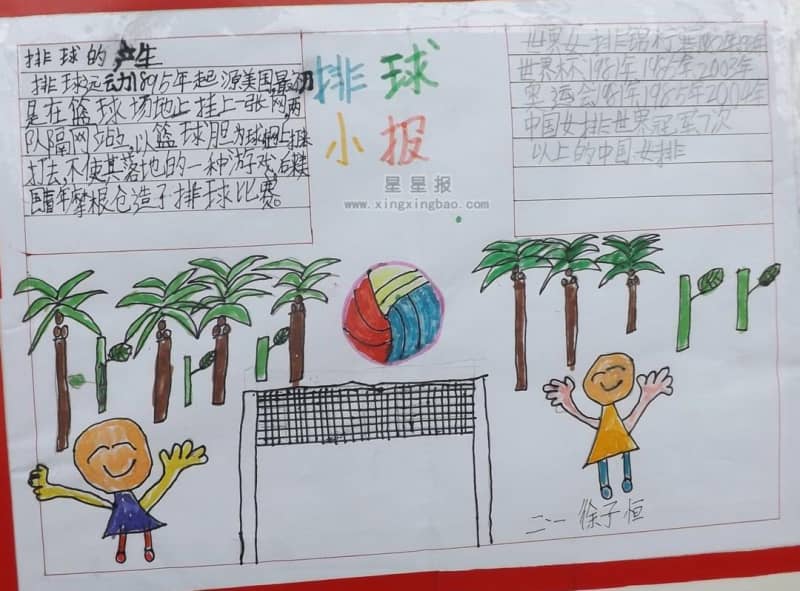 排球的产生
排球运动1895年起源美国最初
是在篮球场地上挂上一张网,两
队隔网站立,以篮球胆为球
打去,不使其落地的一种游戏
国青年摩根仓造了排球比赛。
排球
小报
星星报
www.xingxingbao.com
世界女排锦标
世界杯1981年1985年2003年
奥运会1981年1985年2004年
中国女排世界冠军7次
以上的中国女排
二一 徐子恒